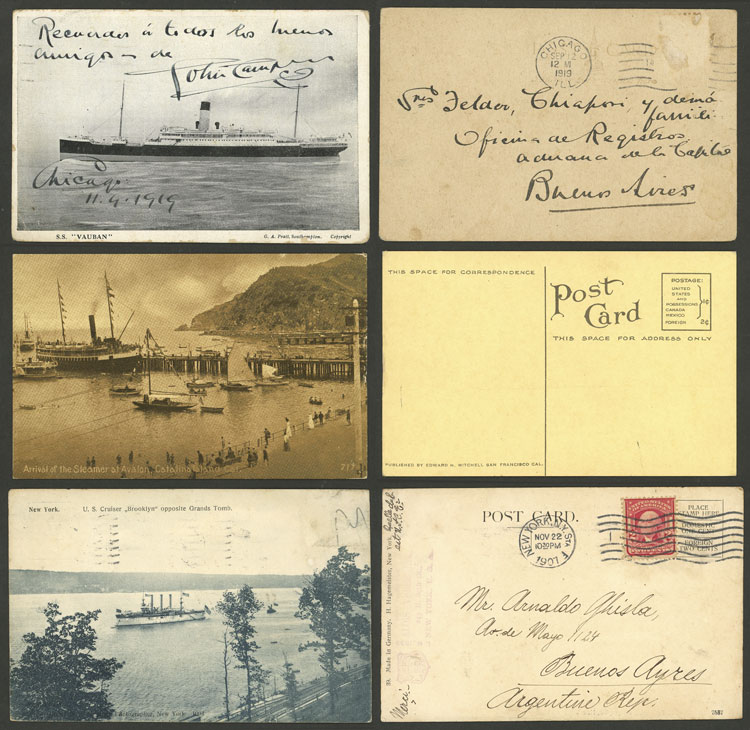 Recuerdos á todos los buenos
amigos de
John
Chicago
11.9.1919
S.S. "VAUBAN"
G. A. Pratt, Southampton. Copyright.
CHICAGO
SEP 12
12 M
1919
ILL.
Sres Felder, Chiapori y demás
famili
Oficina de Registros
aduana de la Capital
Buenos Aires
Arrival of the Steamer at Avalon, Catalina Island Cal.
717
THIS SPACE FOR CORRESPONDENCE
Post
Card
THIS SPACE FOR ADDRESS ONLY
POSTAGE:
UNITED
STATES
AND
POSSESSIONS
CANADA
MEXICO
1¢
FOREIGN 2¢
PUBLISHED BY EDWARD H. MITCHELL SAN FRANCISCO CAL.
New York.
U. S. Cruiser „Brooklyn" opposite Grands Tomb.
New York
POST CARD.
NEW YORK, N.Y.
NOV 22
1030PM
1907
PLACE
STAMP HERE
DOMESTIC
ONE CENT
FOREIGN
TWO CENTS
Mr. Arnaldo Ghisla,
Av. de Mayo 1124
Buenos Ayres
Argentine Rep.
Made in Germany. H. Hagemeister, New York.
7587